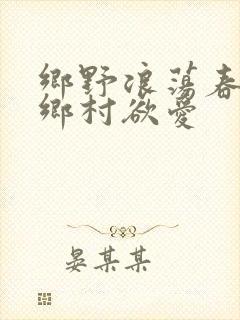 鄉野浪蕩春
鄉村欲愛
晏某某